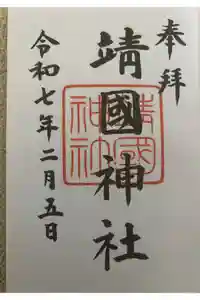 奉拝
靖國神社
靖國神社
令和七年二月五日